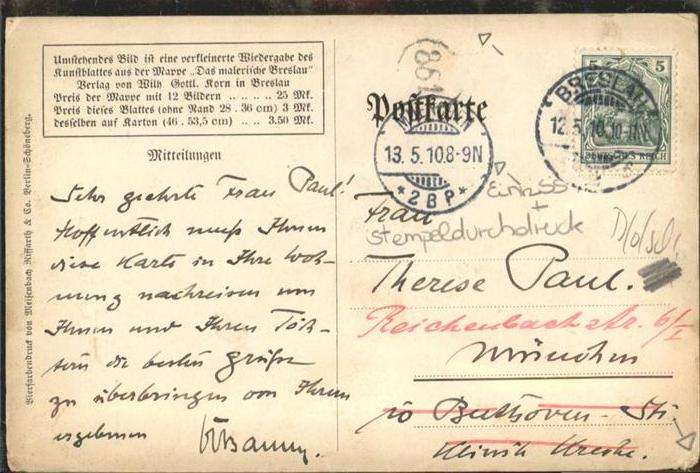 Umstehendes Bild ist eine verkleinerte Wiedergabe des
Kunstblattes aus der Mappe „Das malerische Breslau"
Verlag von Wilh. Gottl. Korn in Breslau
Preis der Mappe mit 12 Bildern .. .. .. .. 25 Mk.
Preis dieses Blattes (ohne Rand 28 . 36 cm) 3 Mk.
desselben auf Karton (46 . 53,5 cm) .. .. 3.50 Mk.
Mitteilungen
Sehr geehrte Frau Paul!
Hoffentlich muß Ihnen
diese Karte in Ihre Woh-
nung nachreisen um
Ihnen und Ihren Töch-
tern die besten Grüße
zu überbringen von Ihrem
ergebenen
Vierfarbendruck von Meisenbach Riffarth & Co. Berlin-Schöneberg.
Postkarte
198
13. 5. 10. 8-9N
* 2BP *
BRESLAU
12. 5. 10. 10-11N
5 5
DEUTSCHES REICH
Einriss
+
Stempeldurchdruck
Frau
Therese Paul.
Reichenbachstr. 6/I
München
Beethoven-Str